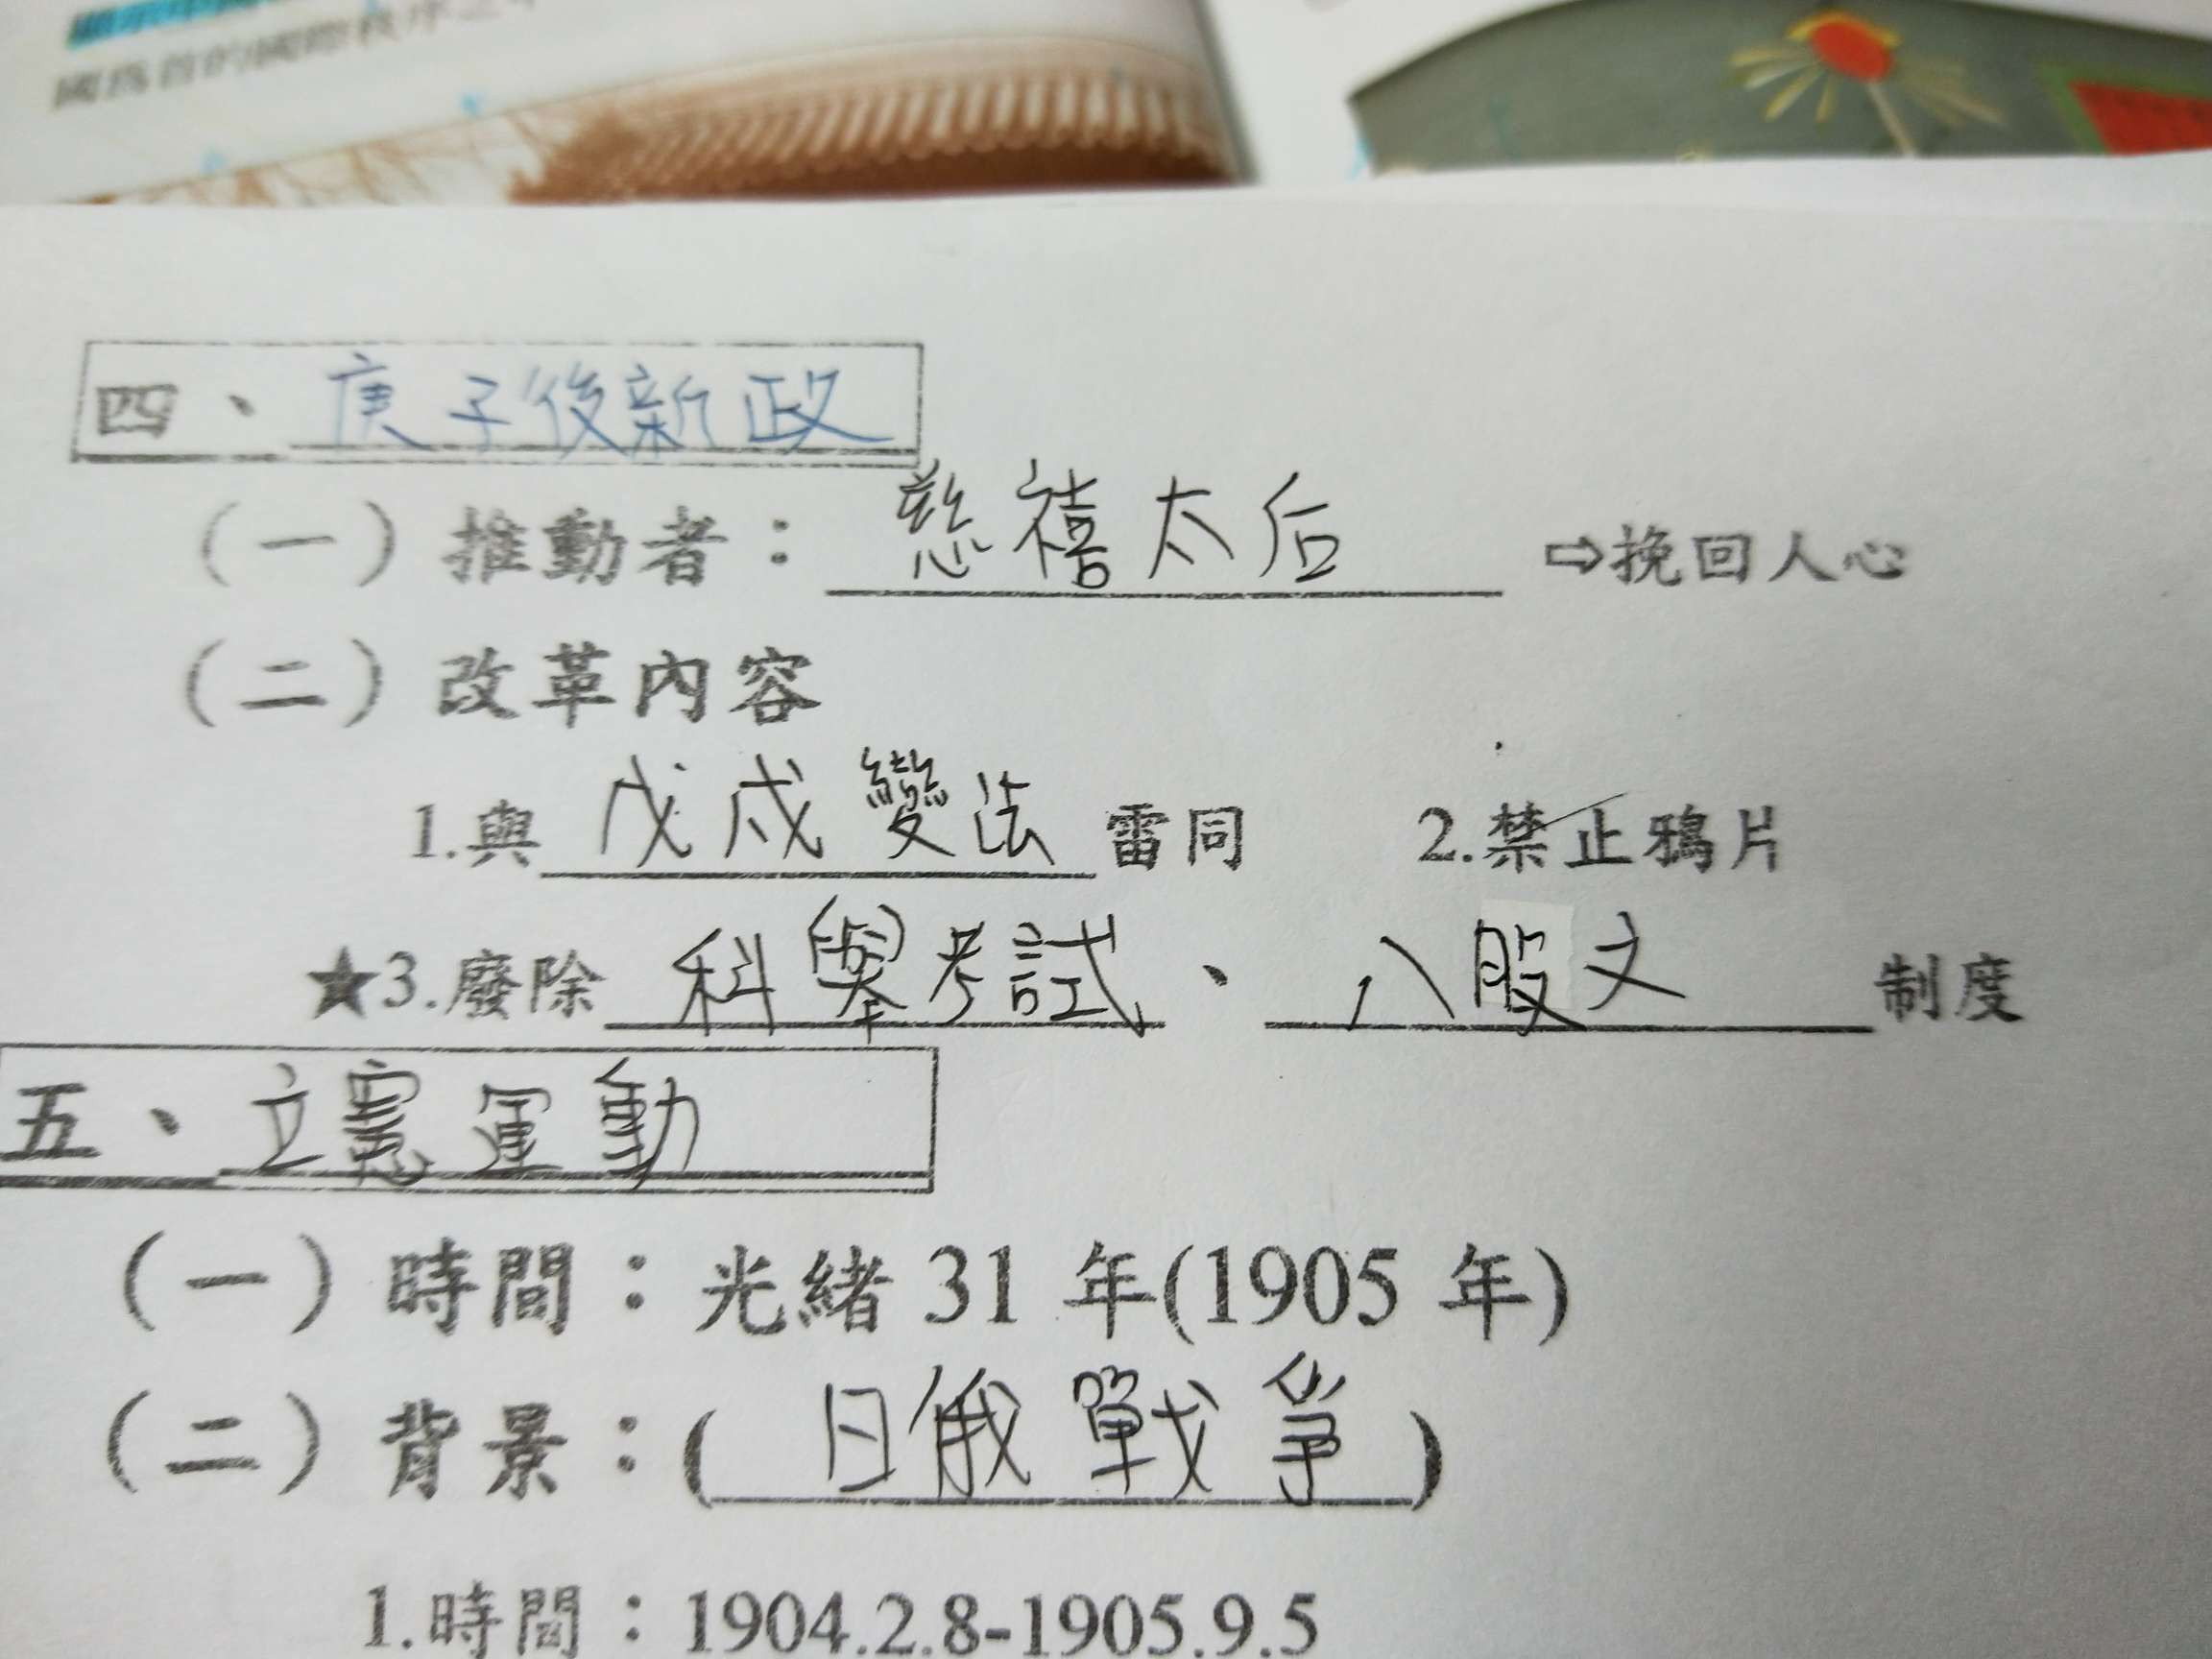 國為首的國際秩序
四、庚子後新政
(一)推動者：慈禧太后 ⇨挽回人心
(二)改革內容
1.與戊戌變法雷同 2.禁止鴉片
★3.廢除科舉考試、八股文制度
五、立憲運動
(一)時間：光緒 31 年(1905 年)
(二)背景：(日俄戰爭)
1.時間：1904.2.8-1905.9.5